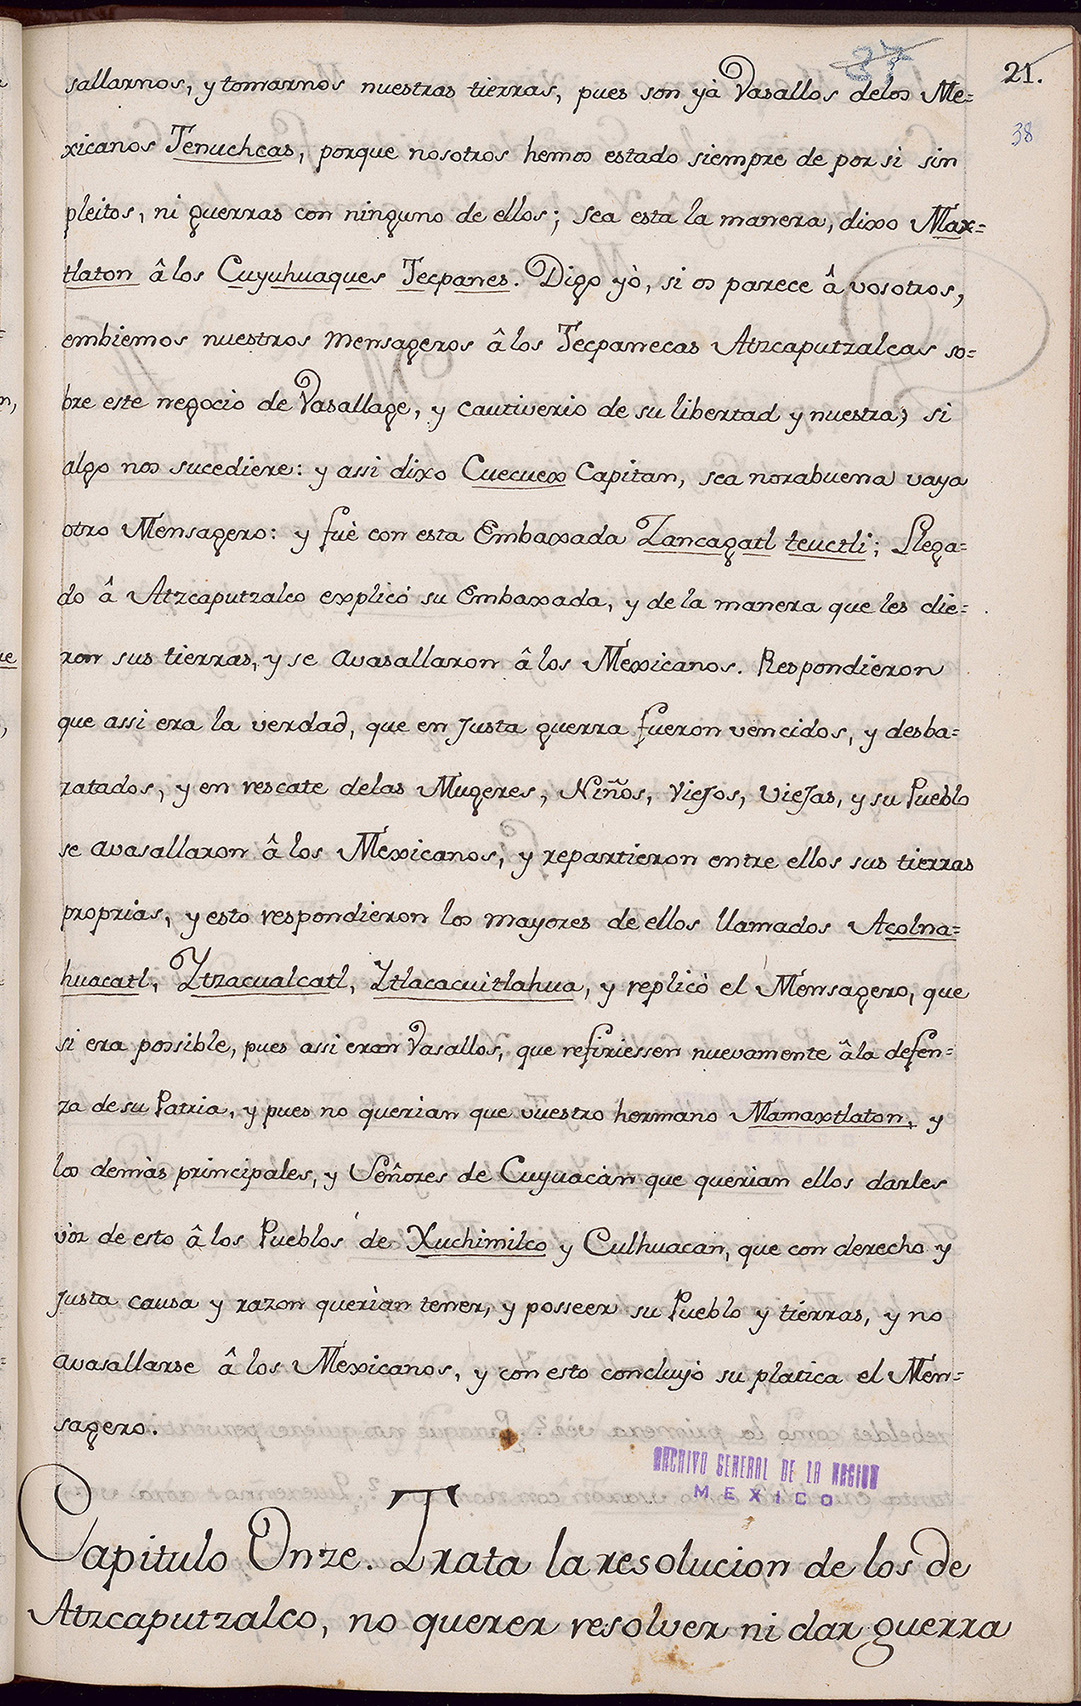 37
21.
38
sallarnos, y tomarnos nuestras tierras, pues son yà Vasallos delos Me=
xicanos Tenuchcas, porque nosotros hemos estado siempre de por si sin
pleitos, ni guerras con ninguno de ellos; sea esta la manera, dixo Max=
tlaton â los Cuyuhuaques Tecpanes. Digo yò, si os parece â vosotros,
embiemos nuestros Mensageros â los Tecpanecas Atzcaputzalcas so=
bre este negocio de Vasallage, y cautiverio de su libertad y nuestra, si
algo nos sucediere: y assi dixo Cuecuex Capitan, sea norabuena vaya
otro Mensagero: y fuè con esta Embaxada Zancagatl teuctli; Llega=
do â Atzcaputzalco explicó su Embaxada, y de la manera que les die=
ron sus tierras, y se avasallaron â los Mexicanos. Respondieron
que assi era la verdad, que en Justa guerra fueron vencidos, y desba=
ratados, y en rescate delas Mugeres, Niños, Viejos, Viejas, y su Pueblo
se avasallaron â los Mexicanos, y repartieron entre ellos sus tierras
proprias, y esto respondieron los mayores de ellos llamados Acolna=
huacatl, Ytzacualcatl, Ytlacacuitlahua, y replicò el Mensagero, que
si era possible, pues assi eran Vasallos, que refiriessen nuevamente âla defen=
za de su Patria, y pues no querian que vuestro hermano Mamaxtlaton, y
los demàs principales, y Señores de Cuyuacàn que querìan ellos darles
vòz de esto â los Pueblos de Xuchimilco y Culhuacan, que con derecho y
Justa causa y razon querìan tener, y posseer su Pueblo y tierras, y no
avasallarse â los Mexicanos, y con esto concluyó su platica el Men=
sagero.
ARCHIVO GENERAL DE LA NACION
MEXICO
Capitulo Onze. Trata la resolucion de los de
Atzcaputzalco, no querer resolver ni dar guerra